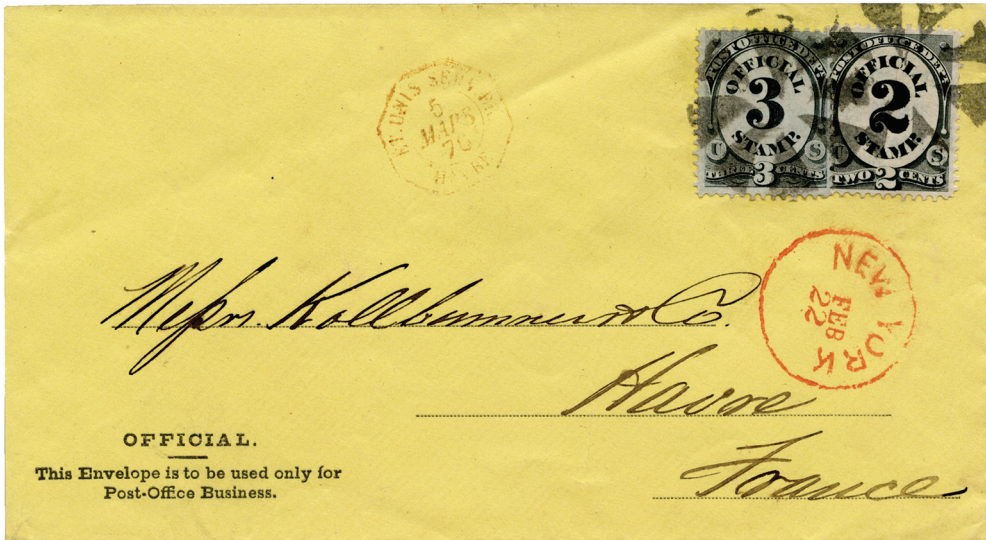 POST OFFICE DEPT.
OFFICIAL
3
STAMP.
U S
THREE 3 CENTS
POST OFFICE DEPT.
OFFICIAL
2
STAMP.
U S
TWO 2 CENTS
ET. UNIS SERV.
5
MARS
76
HAVRE
NEW YORK
FEB
22
Messrs. Kollbrunner & Co.
Havre
France
OFFICIAL.
This Envelope is to be used only for
Post-Office Business.